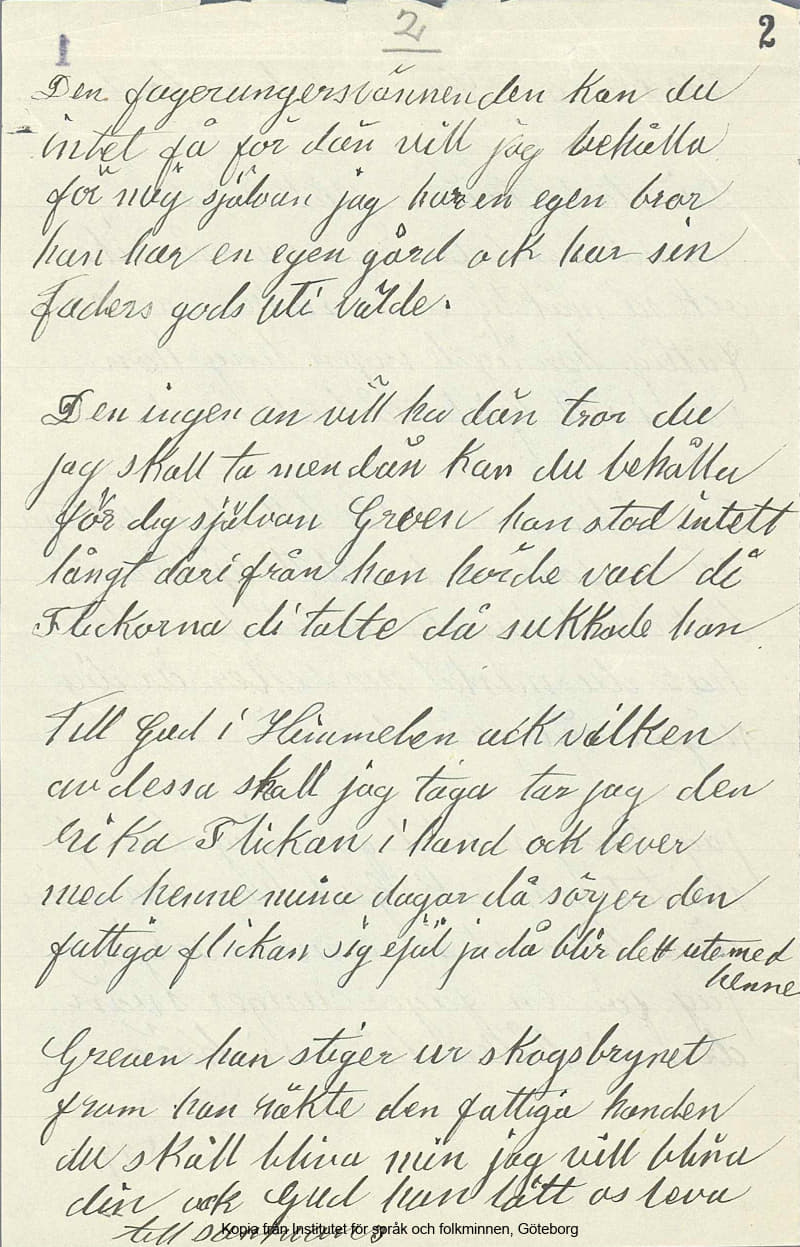 1
2
2
Den fagerungersvännen den kan du
intet få för dän vill jag behålla
för mig självan jag har en egen bror
han har en egen gård ock har sin
Faders gods uti välde.
Den ingen an vill ha dän tror du
jag skall ta men dän kan du behålla
för dig självan Greven han stod intett
långt därifrån han hörde vad di
Flickorna di talte då sukkade han
Till Gud i Himmelen ack vilken
av dessa skall jag taga tar jag den
rika Flickan i hand ock lever
med henne mina dagar då sörjer den
fattiga flickan sig ejäl ja då blir dett ute med
henne
Greven han stiger ur skogsbrynet
fram han räkte den fattiga handen
du skall bliva min jag vill bliva
din ock Gud han lätt os leva
till sammans
Kopia från Institutet för språk och folkminnen, Göteborg